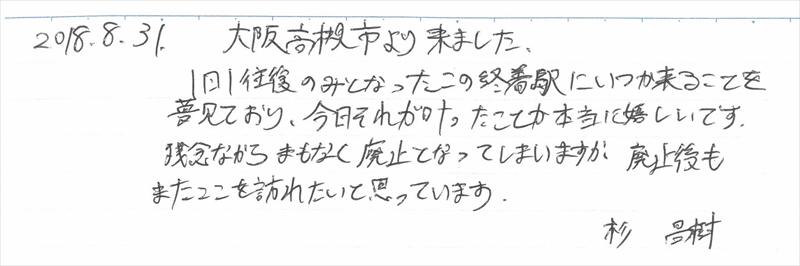 2018.8.31. 大阪高槻市より来ました、
1日1往後のみとなったこの終着駅にいつか来ることを
夢見ており、今日それが叶ったことが本当に嬉しいです.
残念ながらまもなく廃止となってしまいますが、廃止後も
またここを訪れたいと思っています.
杉 昌樹